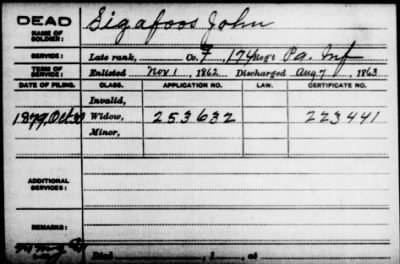 DEAD
NAME OF SOLDIER: Sigafoos John
SERVICE: Late rank, Co. F, 174 Reg't Pa. Inf
TERM OF SERVICE: Enlisted Nov 1, 1862 Discharged Aug 7, 1863
DATE OF FILING. CLASS. APPLICATION NO. LAW. CERTIFICATE NO.
Invalid,
1879, Oct Widow, 253632 223441
Minor,
ADDITIONAL SERVICES:
REMARKS:
Died , 1 , at